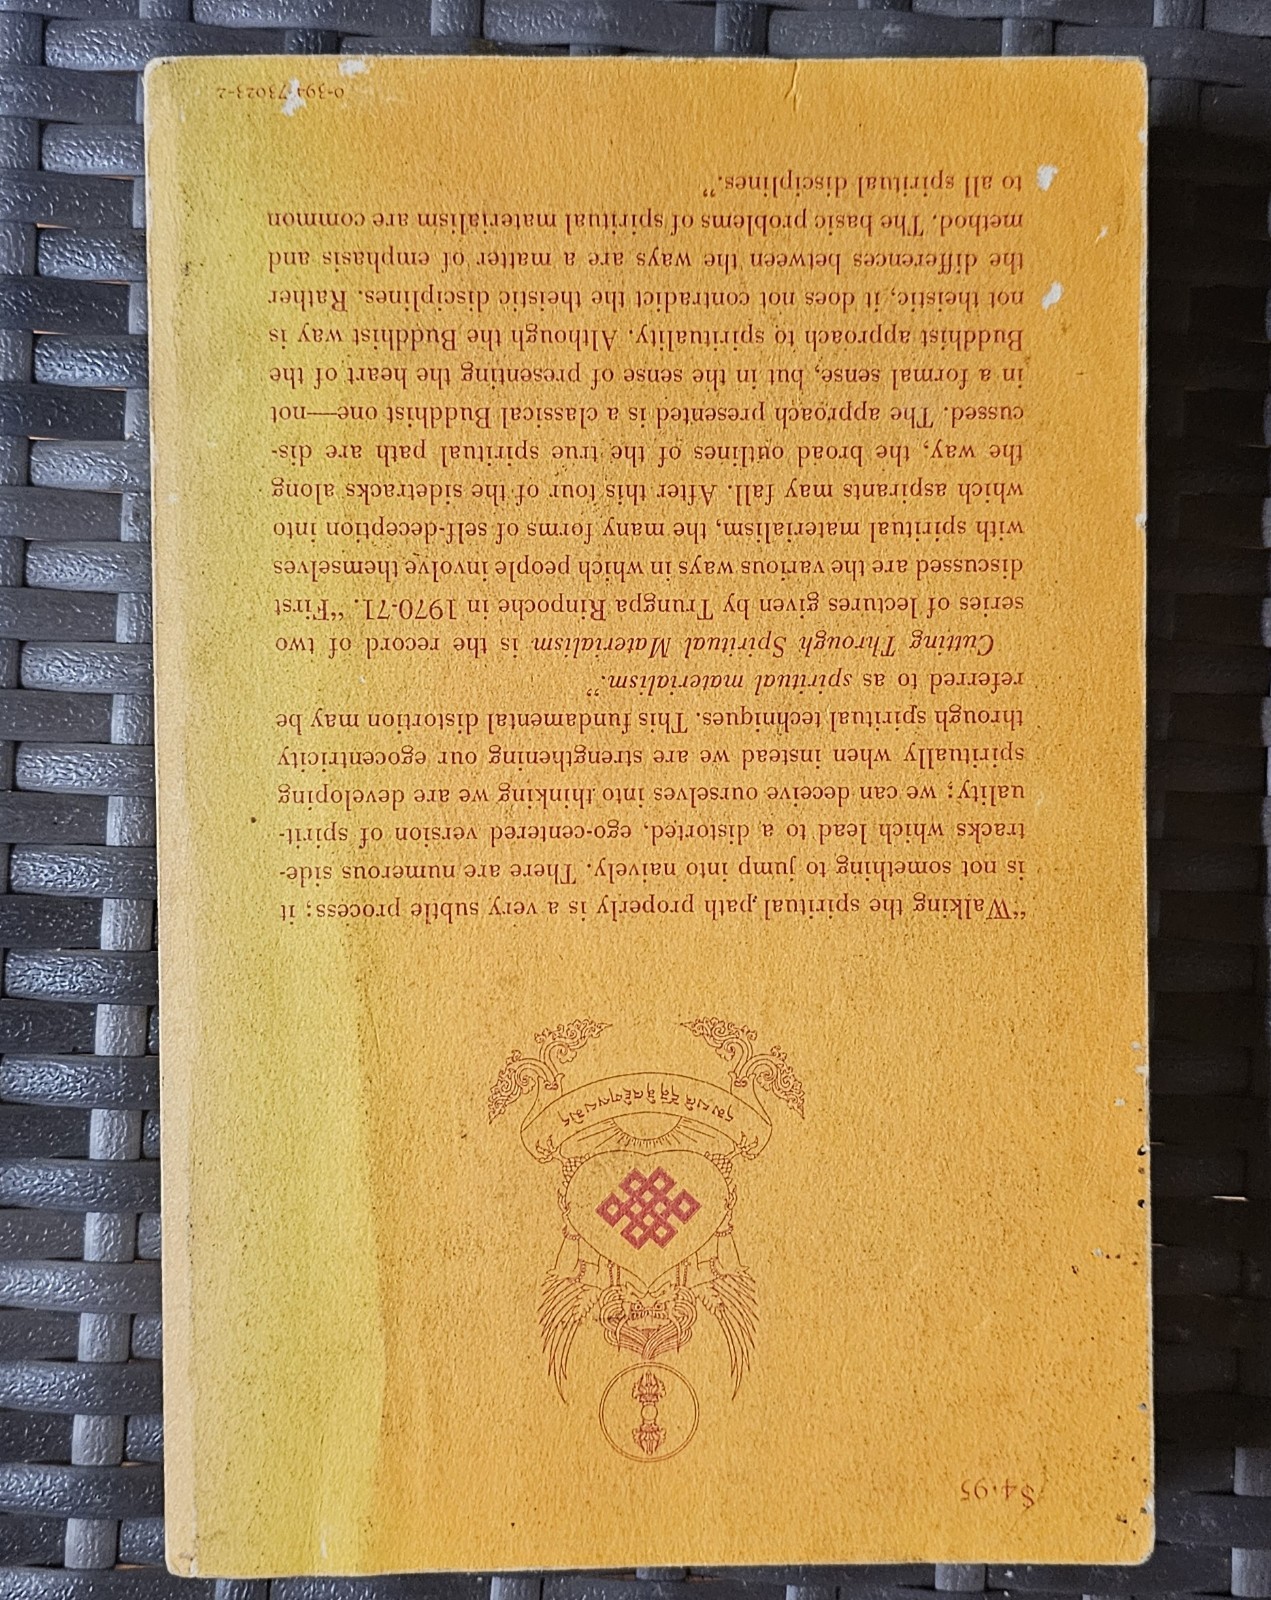 $4.95
“Walking the spiritual path properly is a very subtle process; it
is not something to jump into naively. There are numerous side-
tracks which lead to a distorted, ego-centered version of spirit-
uality; we can deceive ourselves into thinking we are developing
spiritually when instead we are strengthening our egocentricity
through spiritual techniques. This fundamental distortion may be
referred to as spiritual materialism.”
Cutting Through Spiritual Materialism is the record of two
series of lectures given by Trungpa Rinpoche in 1970-71. “First
discussed are the various ways in which people involve themselves
with spiritual materialism, the many forms of self-deception into
which aspirants may fall. After this tour of the sidetracks along
the way, the broad outlines of the true spiritual path are dis-
cussed. The approach presented is a classical Buddhist one—not
in a formal sense, but in the sense of presenting the heart of the
Buddhist approach to spirituality. Although the Buddhist way is
not theistic, it does not contradict the theistic disciplines. Rather
the differences between the ways are a matter of emphasis and
method. The basic problems of spiritual materialism are common
to all spiritual disciplines.”
0-394-73023-2